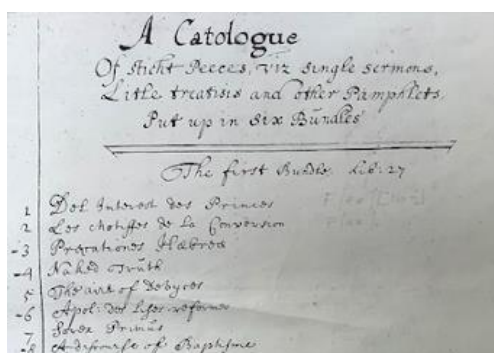 A Catologue
Of sticht Peeces, viz single sermons,
Litle treatisis and other Pamphlets.
Put up in six Bundles
The first Bundle. Lib: 27
1 Del Interest des Princes
2 Les Motiffes de la Conversion
-3 Precationes Hæbreæ
-4 Naked Truth
5 The aire of
-6 Apol: des reformes
7 Sorex Primus
-8 A discourse of Baptisme